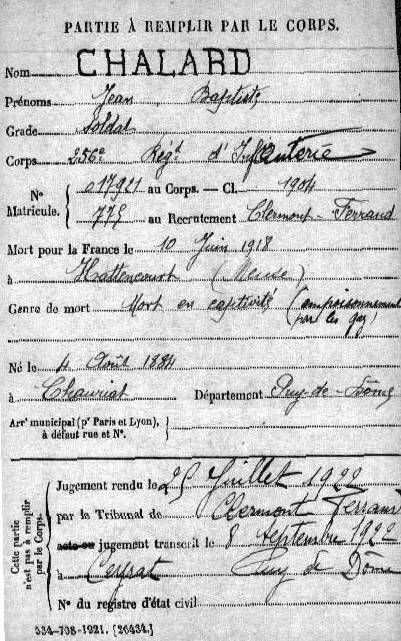 PARTIE À REMPLIR PAR LE CORPS.
Nom CHALARD
Prénoms Jean Baptiste
Grade Soldat
Corps 256e Régt d'Infanterie
N° Matricule. 017921 au Corps. — Cl. 1904
775 au Recrutement Clermont-Ferrand
Mort pour la France le 10 Juin 1918
à Hattencourt (Meuse)
Genre de mort Mort en captivité (empoisonnement
par les gaz)
Né le 4 Août 1884
à Chauriat Département Puy-de-Dôme
Arrt municipal (pr Paris et Lyon),
à défaut rue et N°.
Cette partie n'est pas à remplir par le Corps.
Jugement rendu le 25 Juillet 1922
par le Tribunal de Clermont Ferrand
acte ou jugement transcrit le 8 Septembre 1922
à Ceyrat Puy de Dôme
N° du registre d'état civil
534-708-1921. [26434.]